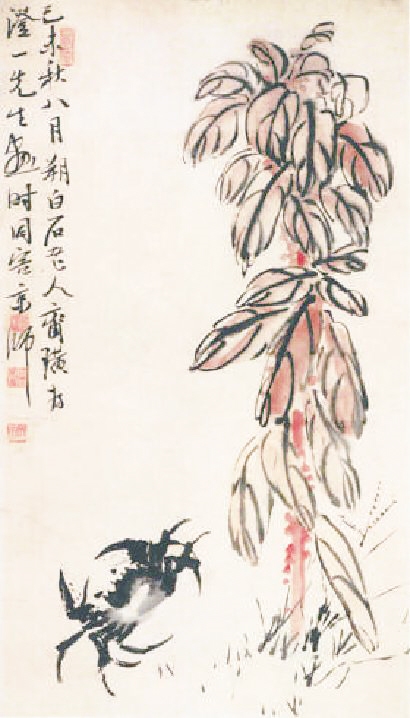 己未秋八月朔白石老人齊璜为
澄一先生画时同客京师